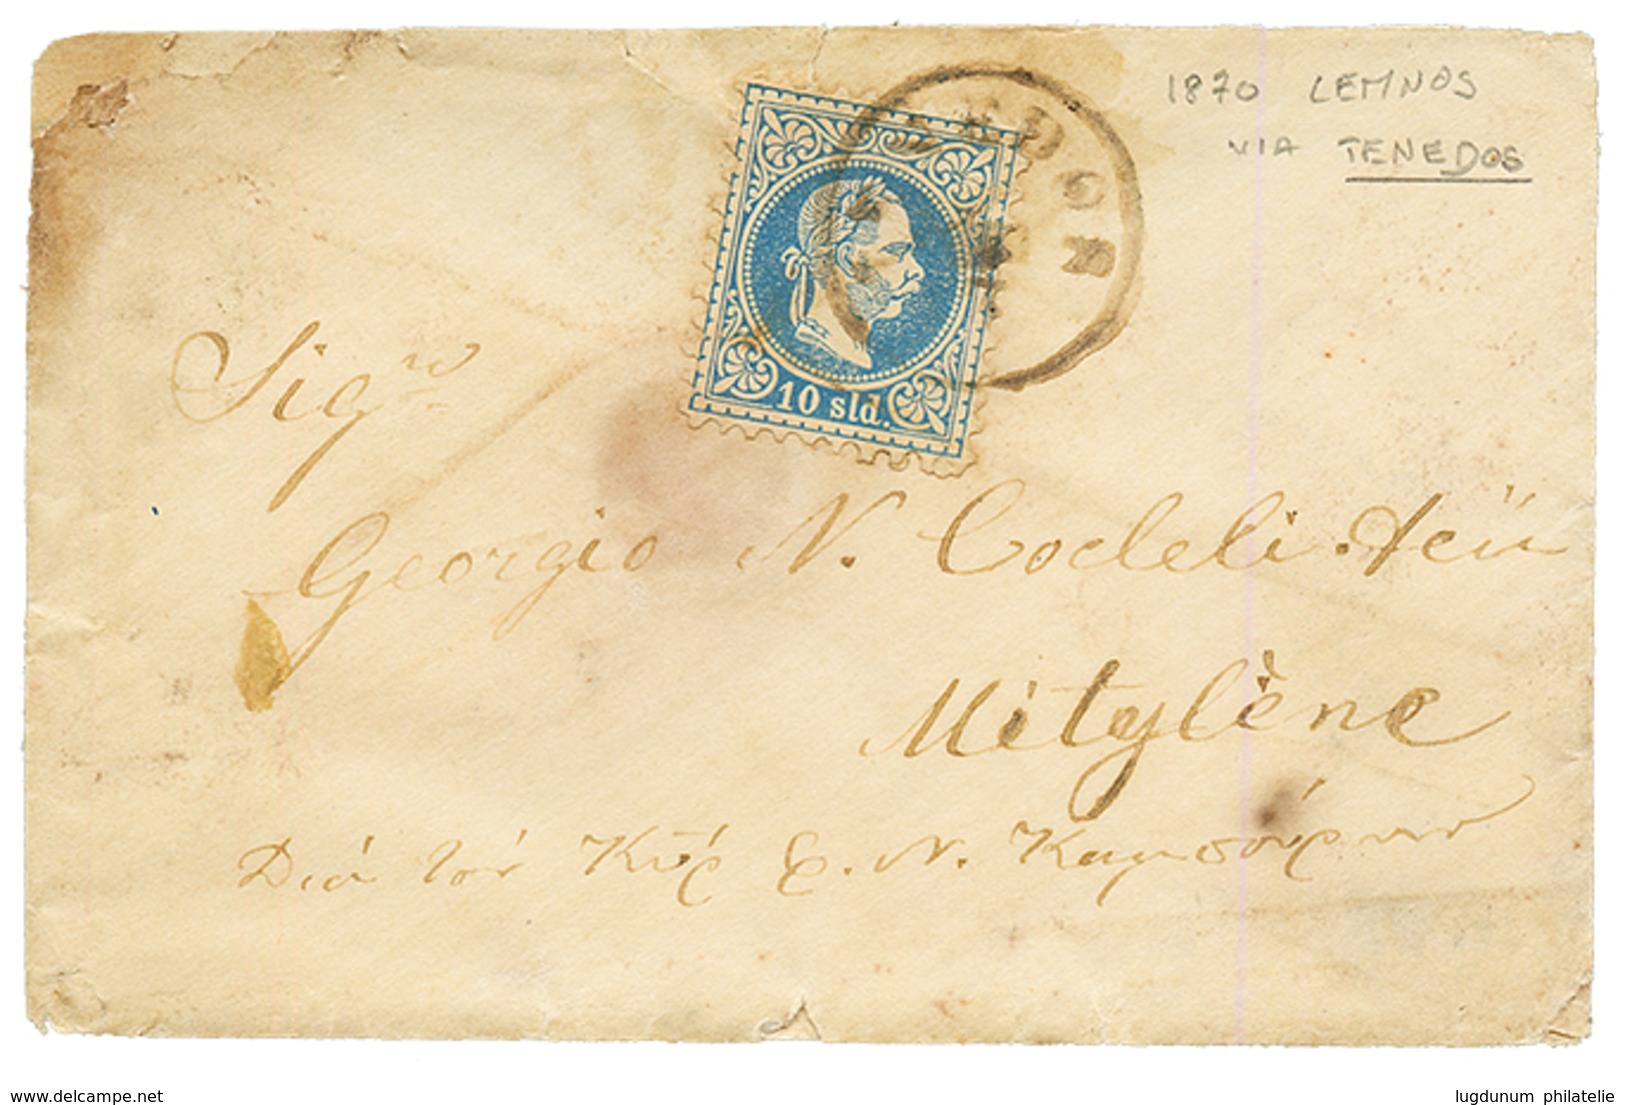 1870 LEMNOS
VIA TENEDOS
10 sld.
Sig.r
Georgio N. Codeli
Mitylène
Διά τόν Κύρ
www.delcampe.net
lugdunum philatelie